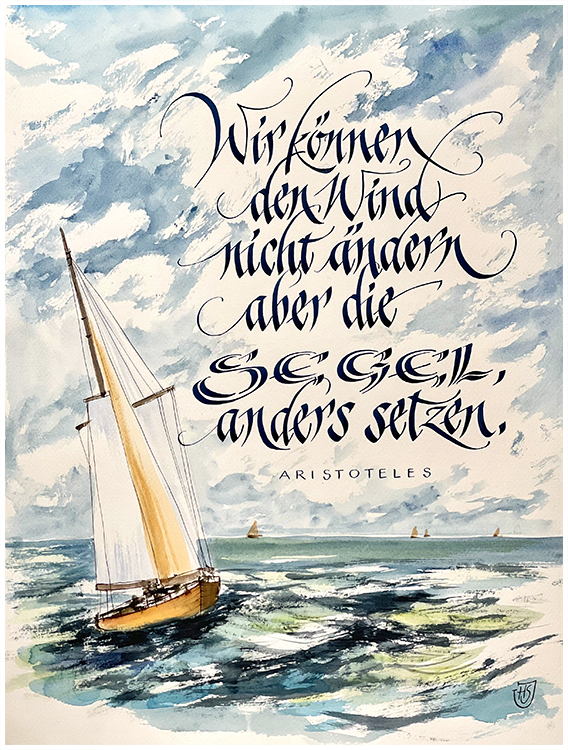 Wir können
den Wind
nicht ändern
aber die
SEGEL
anders setzen.
ARISTOTELES
HS